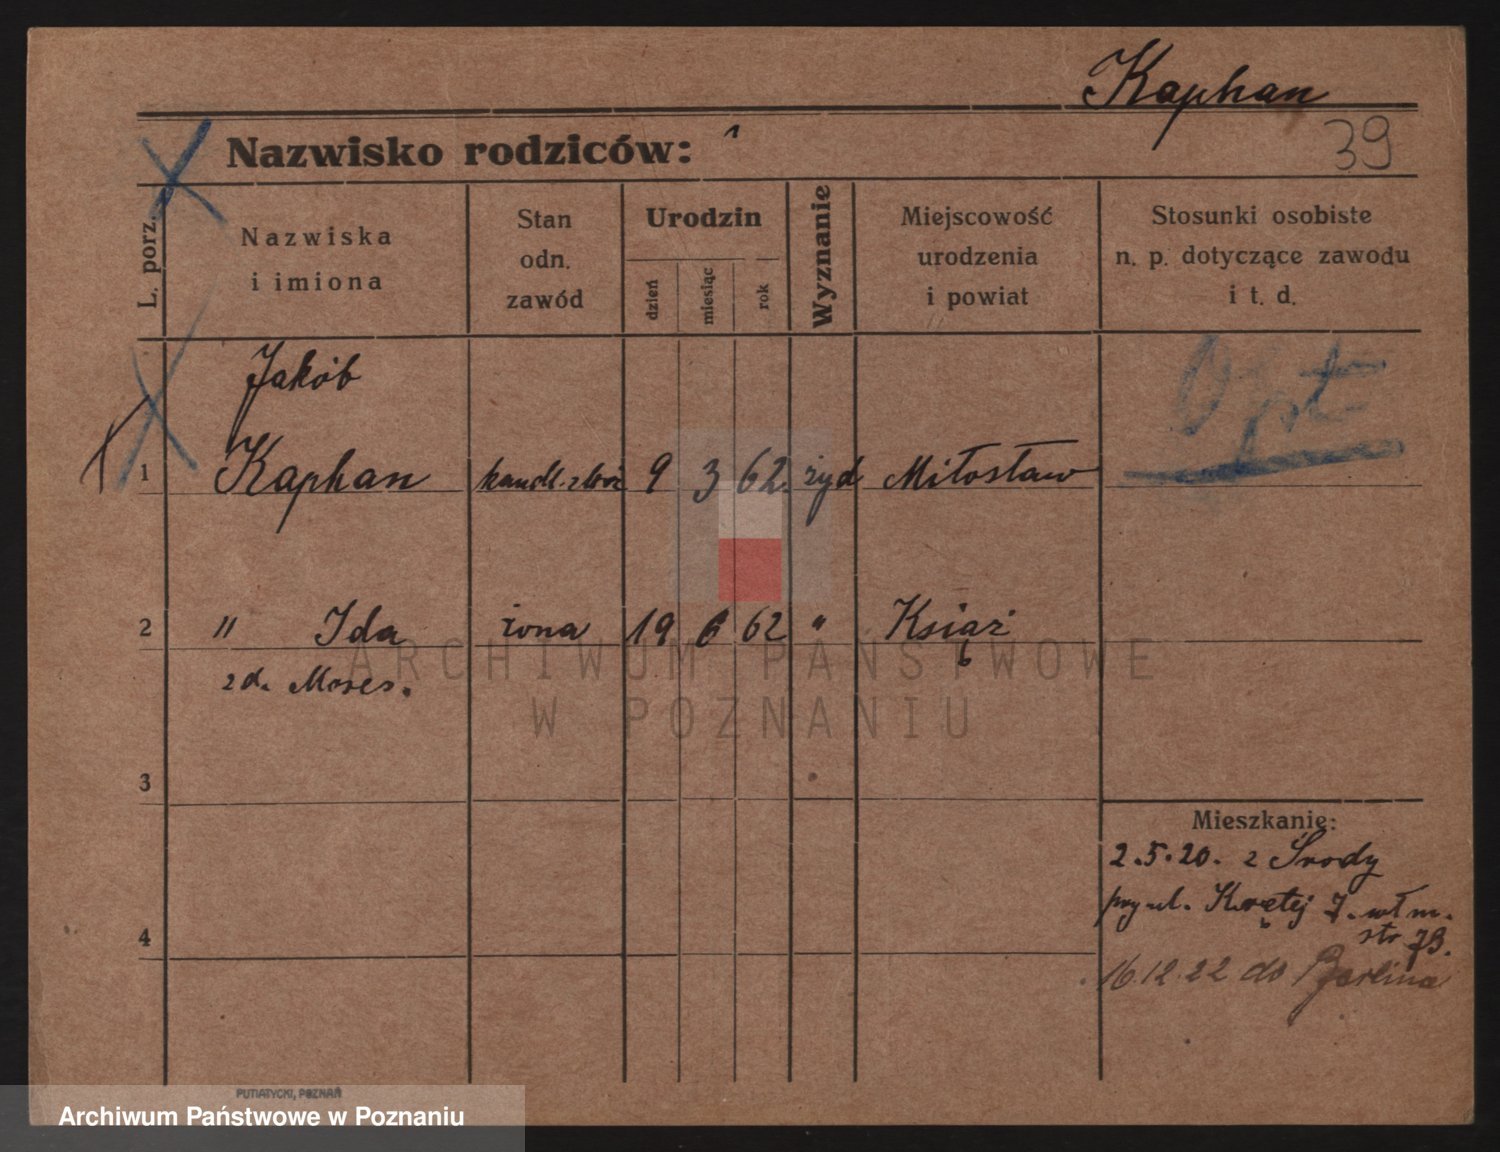 Kaphan
Nazwisko rodziców:
39
L. porz.
Nazwiska
i imiona
Stan
odn.
zawód
Urodzin
dzień
miesiąc
rok
Wyznanie
Miejscowość
urodzenia
i powiat
Stosunki osobiste
n. p. dotyczące zawodu
i t. d.
Jakób
1 Kaphan handl. zboż 9 3 62. żyd Miłosław
2 " Ida żona 19 6 62 " Książ
zd. Moses.
3
4
Mieszkanie:
2.5.20. z Środy
przy ul. Krętej 7.
str 73.
16.12.22 do Berlina
ARCHIWUM PAŃSTWOWE
W POZNANIU
PUTIATYCKI, POZNAŃ
Archiwum Państwowe w Poznaniu